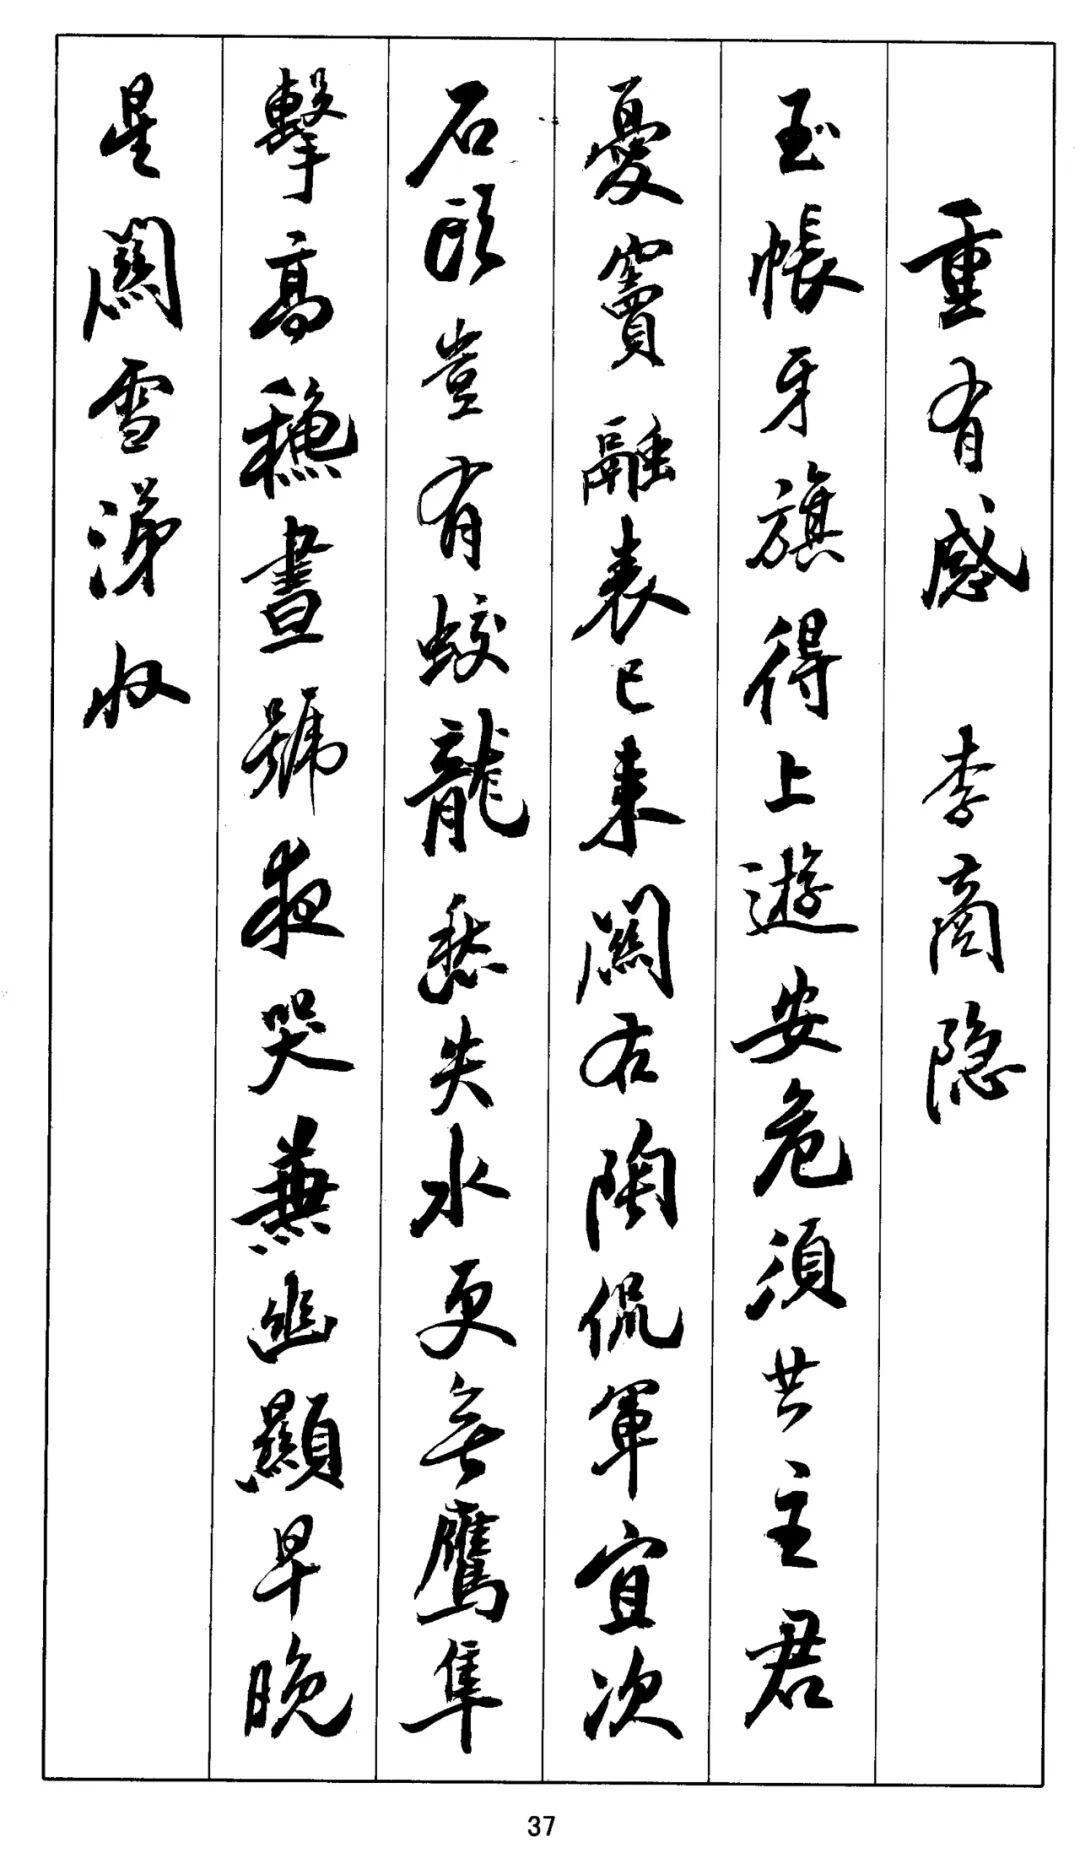 重有感 李商隐
玉帳牙旗得上遊安危須共主君
憂竇融表已来關右陶侃軍宜次
石頭豈有蛟龍愁失水更無鷹隼
擊高穐晝號夜哭兼幽顯早晚
星關雪涕収
37